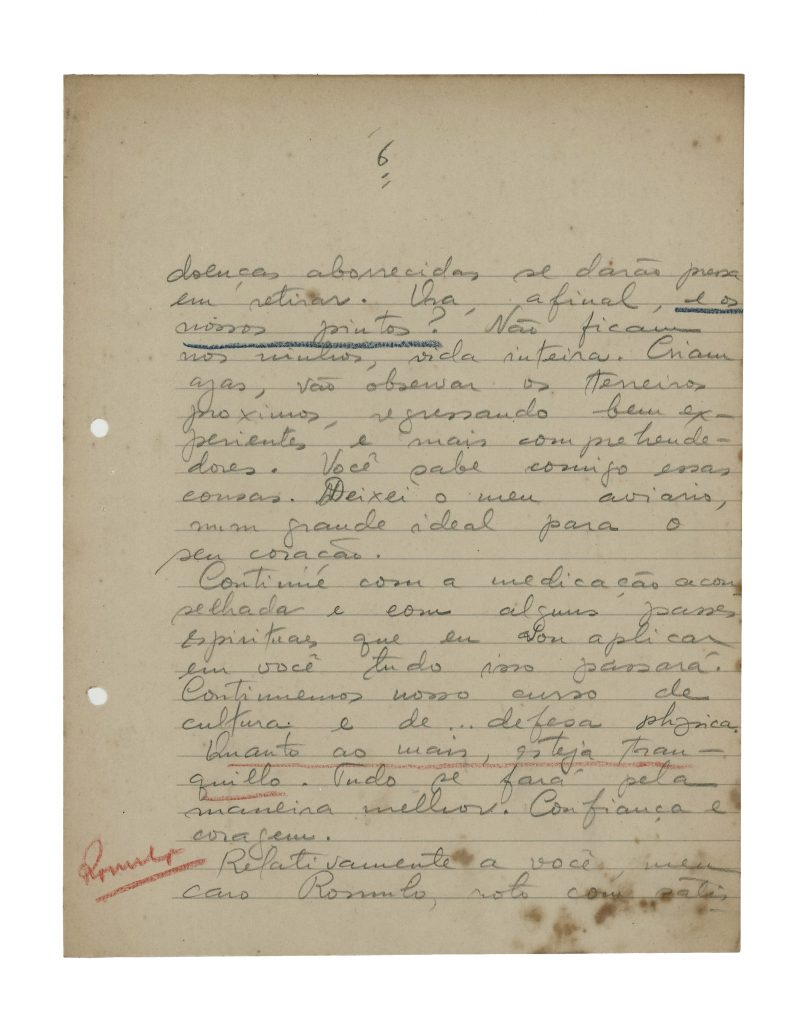 6
doenças aborrecidas se darão pressa
em retirar. Ora, afinal, e os
nossos pintos? Não ficam
nos ninhos, vida inteira. Criam
azas, vão observar os terreiros
proximos, regressando bem ex-
perientes e mais comprehende-
dores. Você sabe comigo essas
cousas. Deixei o meu aviario,
num grande ideal para o
seu coração.
Continúe com a medicação acon
selhada e com alguns passes
espirituaes que eu vou aplicar
em você tudo isso passará.
Continuemos nosso curso de
cultura e de... defesa physica.
Quanto ao mais, esteja tran-
quillo. Tudo se fará pela
maneira melhor. Confiança e
coragem.
Romulo
Relativamente a você, meu
caro Romulo, noto com satis